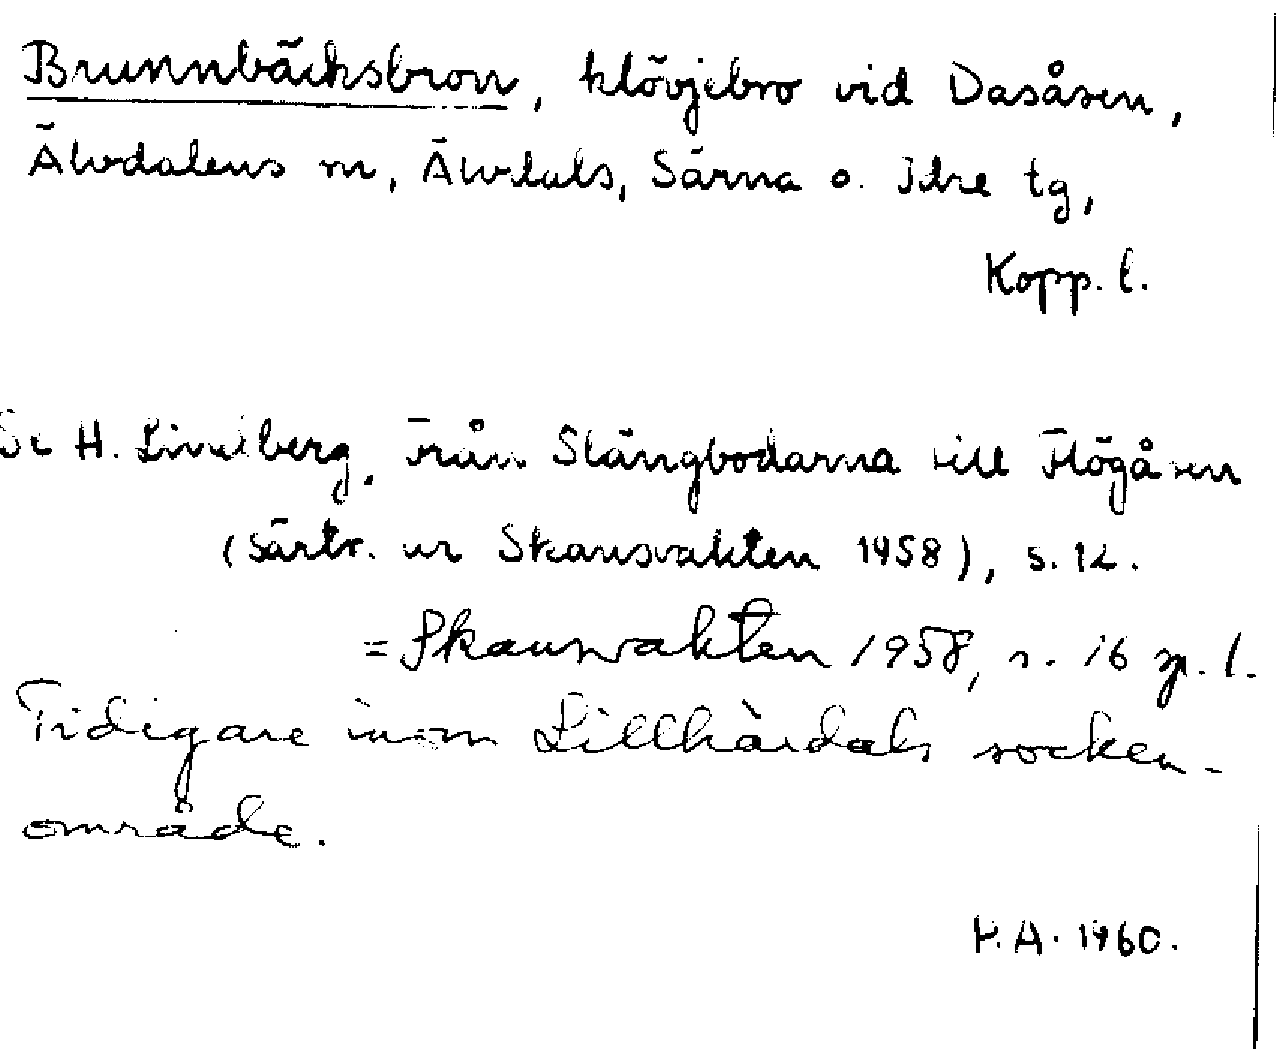 Brunnbäcksbron, klövjebro vid Dasåsen,
Älvdalens sn, Älvdals, Särna o. Idre tg,
Kopp. l.
Se H. Lindberg, Från Slängbodarna till Högåsen
(Särtr. ur Skansvakten 1958), s. 12.
= Skansvakten 1958, s. 16 sp. 1.
Tidigare inom Lillhärdals socken-
område.
H.A. 1960.